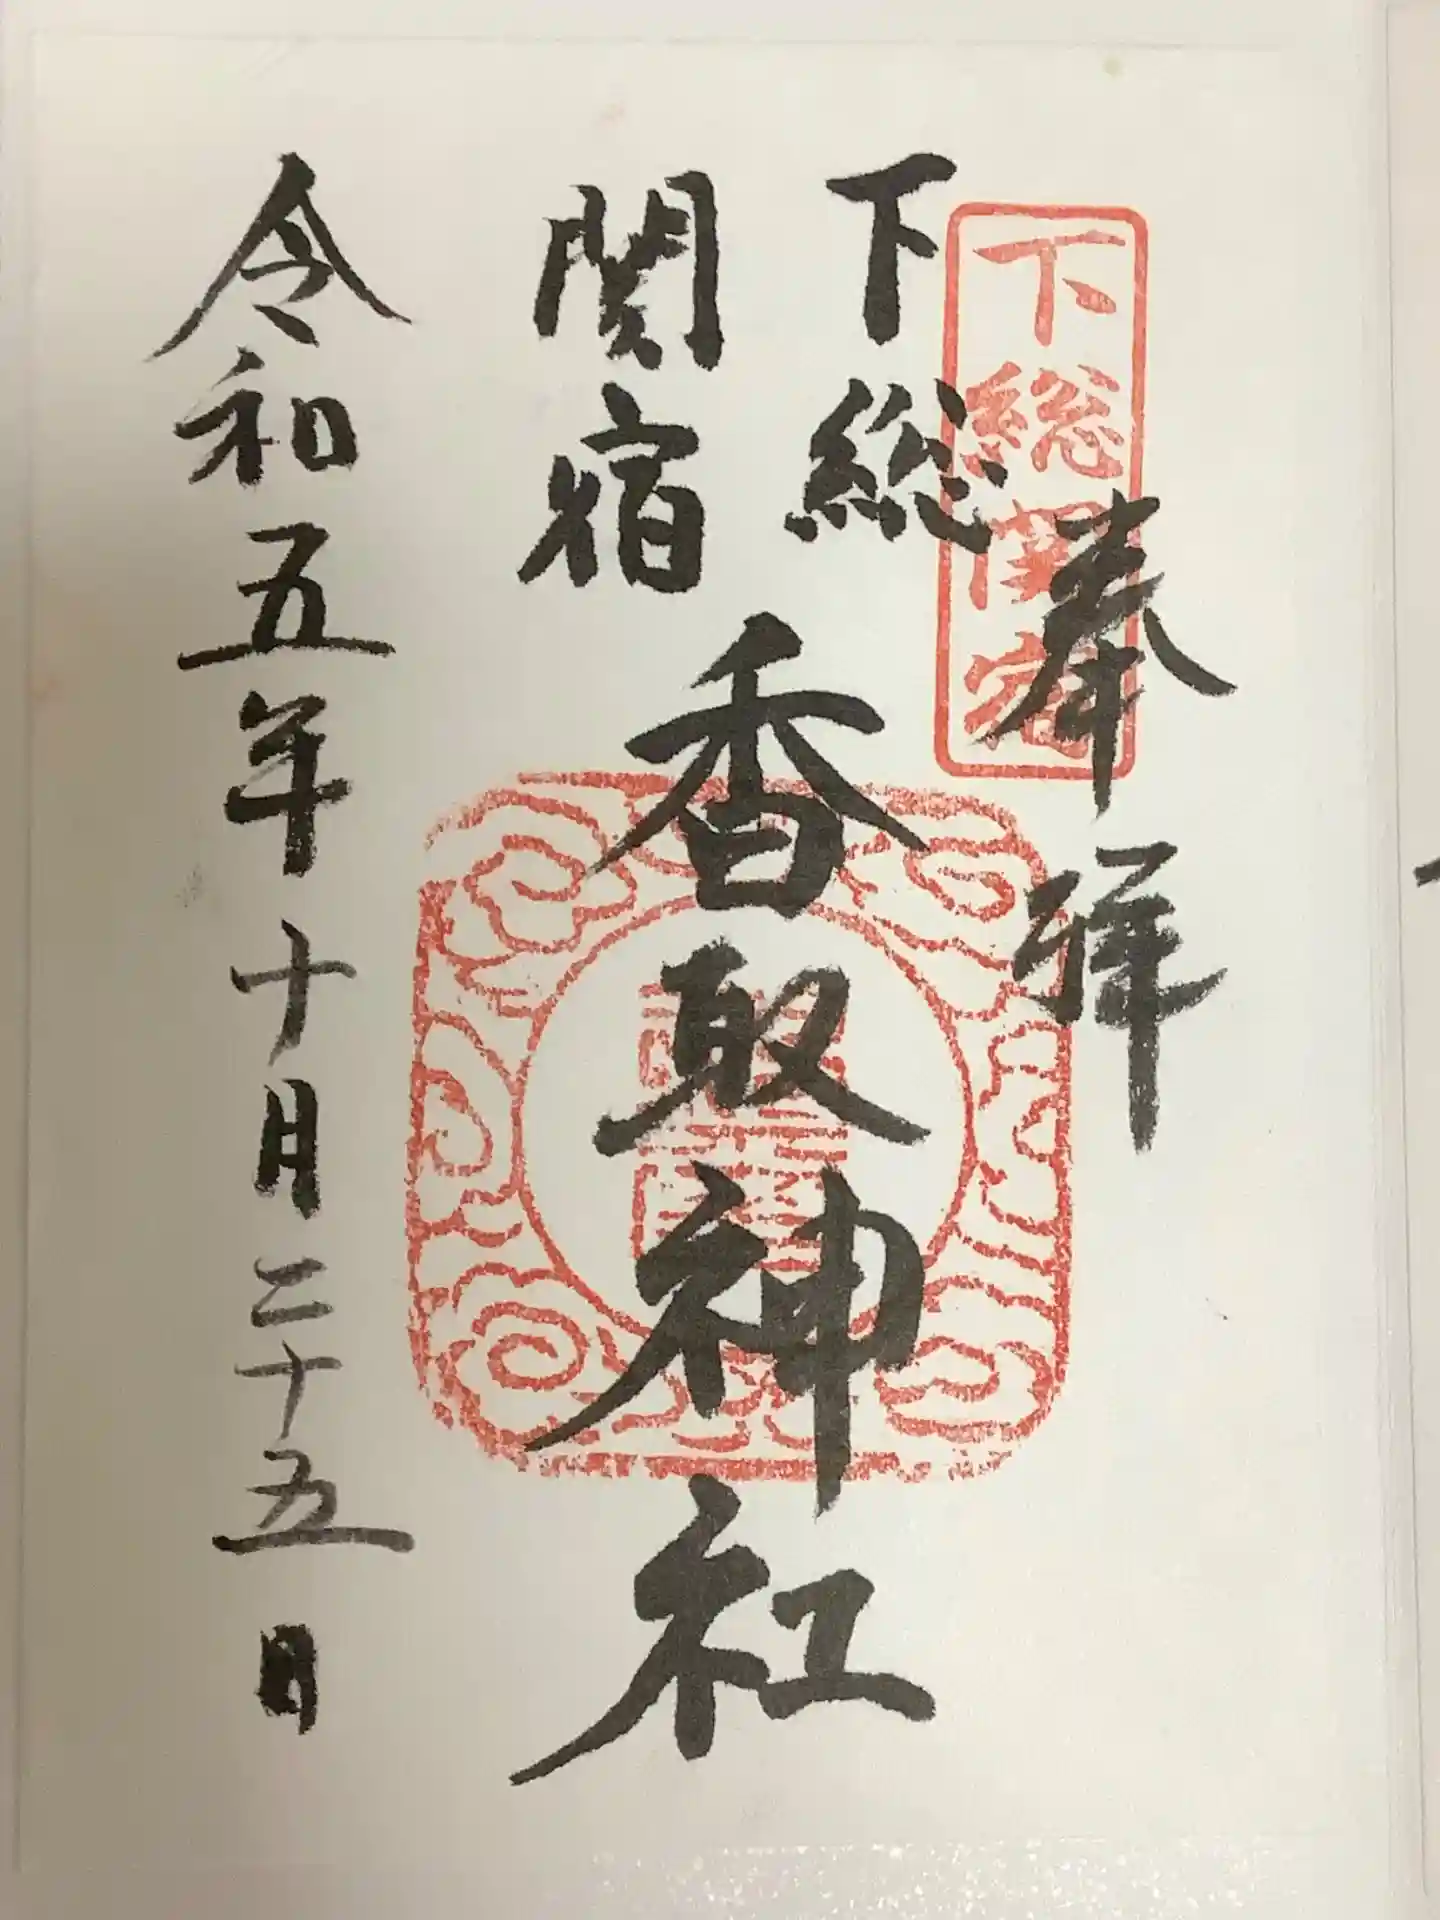 奉拝
下総関宿
下総
関宿
香取神社
令和五年十月二十五日